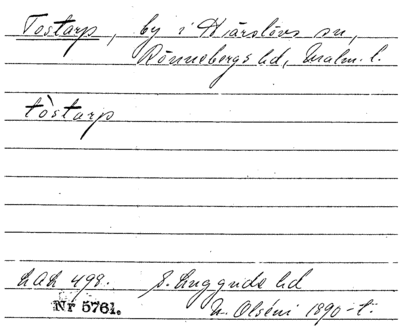 Tostarp, by i Härslövs sn,
Rönnebergs hd, Malm. l.
tòstarp
LAL 498. S. Luggude hd
Nr 5761. N. Olséni 1890-t.